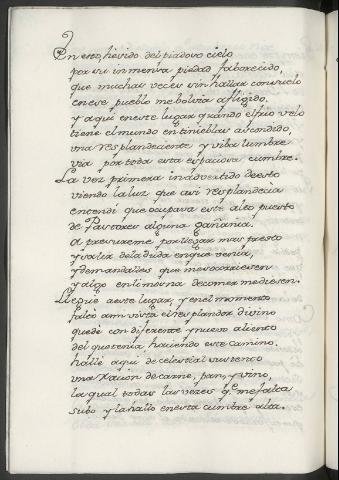 En esto, herido del piadoso cielo
por su inmensa piedad faborecido,
que muchas veces sin hallar consuelo
en ese pueblo me bolvia afligido.
y aqui en este lugar quando el frio yelo
tiene el mundo en tinieblas ascondido,
una resplandeciente y viba lumbre
via por toda esta espaciosa cumbre.
La vez primera inadvertido de esto
viendo la luz que asi resplandecia
entendi que ocupava este alto puesto
de Pastores alguna gañania.
apresureme por llegar mas presto
y salir de la duda en que venia,
y demandalles que me socorriesen
y algo en limosna de comer me diesen.
Llegue a este lugar, y en el momento
faltó a mi vista el resplandor divino
quedé con diferente y nuevo aliento
del que tenia haciendo este camino.
hallé aqui de celestial sustento
una Racion de carne, pan, y vino,
la qual todas las veces q.e me falta
subo y la hallo en esta cumbre alta.